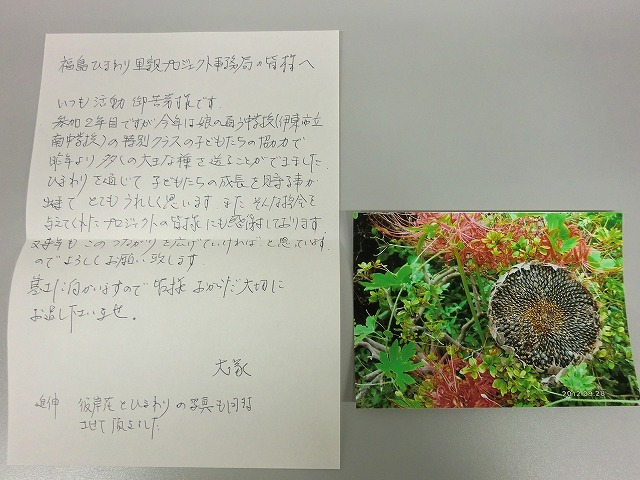 福島ひまわり里親プロジェクト事務局の皆様へ
いつも活動御苦労様です。
参加2年目ですが今年は娘の通う中学校(伊東市立
南中学校)の特別クラスの子どもたちの協力で
昨年より多くの大きな種を送ることができました。
ひまわりを通じて子どもたちの成長を見守る事が
出来て とてもうれしく思います。また そんな機会を
与えてくれたプロジェクトの皆様にも感謝しております。
来年もこのつながりを広げていければと思っています
のでよろしくお願い致します。
寒さに向かいますので皆様 おからだ大切に
お過し下さいませ。
大塚
追伸 彼岸花とひまわりの写真も同封
させて頂きました
2012.09.28